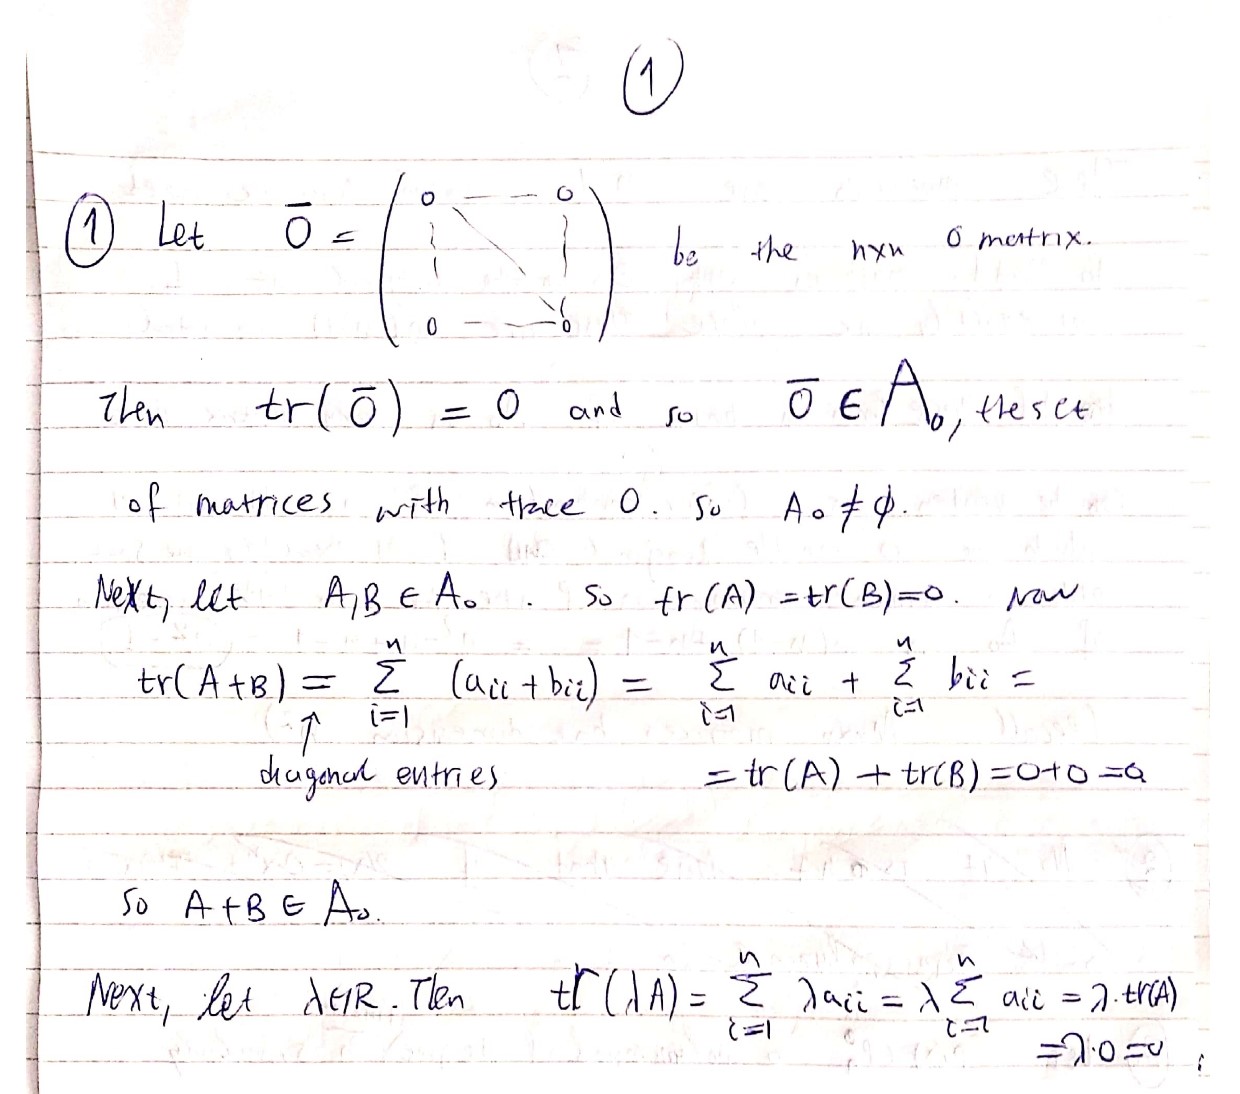 ①
① Let 0̄ = ( 0 — — 0
0 — — 0 ) be the nxn 0 matrix.
Then tr(0̄) = 0 and so 0̄ ∈ A₀, the set
of matrices with trace 0. So A₀ ≠ ϕ.
Next, let A,B ∈ A₀. So tr(A) = tr(B)=0. Now
tr(A+B) = Σⁿᵢ₌₁ (aii + bii) = Σⁿᵢ₌₁ aii + Σⁿᵢ₌₁ bii =
↑
diagonal entries = tr(A) + tr(B) = 0+0 = 0
So A+B ∈ A₀.
Next, let λ∈ℝ. Then tr(λA) = Σⁿᵢ₌₁ λaii = λ Σⁿᵢ₌₁ aii = λ·tr(A)
= λ·0 = 0